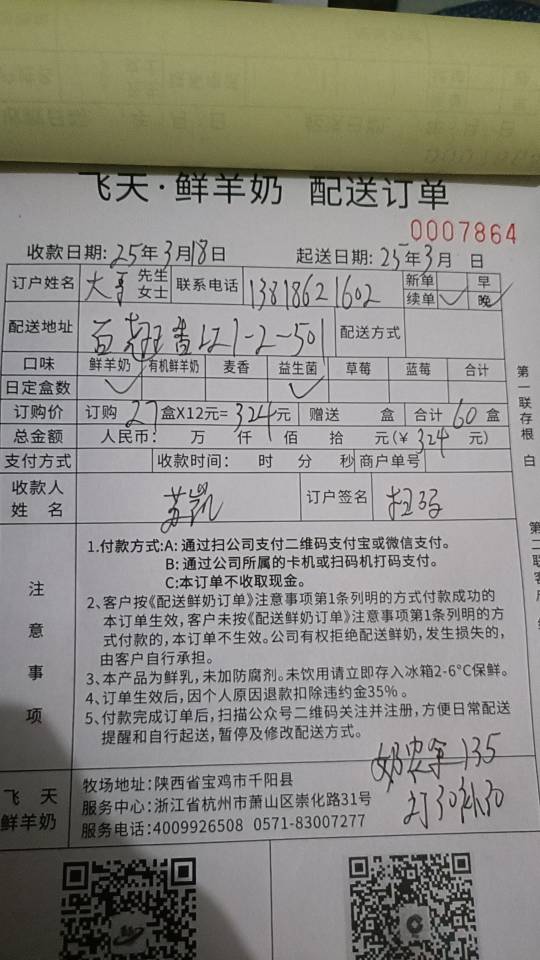 飞天·鲜羊奶 配送订单
0007864
收款日期:25年3月18日 起送日期:25年3月 日
订户姓名 大哥 先生 女士 联系电话 13818621602 新单 早 续单 晚
配送地址 1-2-501 配送方式
口味 鲜羊奶 有机鲜羊奶 麦香 益生菌 草莓 蓝莓 合计
日定盒数
订购价 订购 27 盒X12元= 324元 赠送 盒 合计 60 盒
总金额 人民币: 万 仟 佰 拾 元(¥ 324 元)
支付方式 收款时间: 时 分 秒 商户单号
收款人姓名 苏凯 订户签名
第一联存根 白
第二联客户
注意事项
1.付款方式:A:通过扫公司支付二维码支付宝或微信支付。
B:通过公司所属的卡机或扫码机打码支付。
C:本订单不收取现金。
2、客户按《配送鲜奶订单》注意事项第1条列明的方式付款成功的
本订单生效,客户未按《配送鲜奶订单》注意事项第1条列明的方
式付款的,本订单不生效。公司有权拒绝配送鲜奶,发生损失的,
由客户自行承担。
3、本产品为鲜乳,未加防腐剂。未饮用请立即存入冰箱2-6°C保鲜。
4、订单生效后,因个人原因退款扣除违约金35%。
5、付款完成订单后,扫描公众号二维码关注并注册,方便日常配送
提醒和自行起送,暂停及修改配送方式。
135
订30补30
飞天鲜羊奶
牧场地址:陕西省宝鸡市千阳县
服务中心:浙江省杭州市萧山区崇化路31号
服务电话:4009926508 0571-83007277